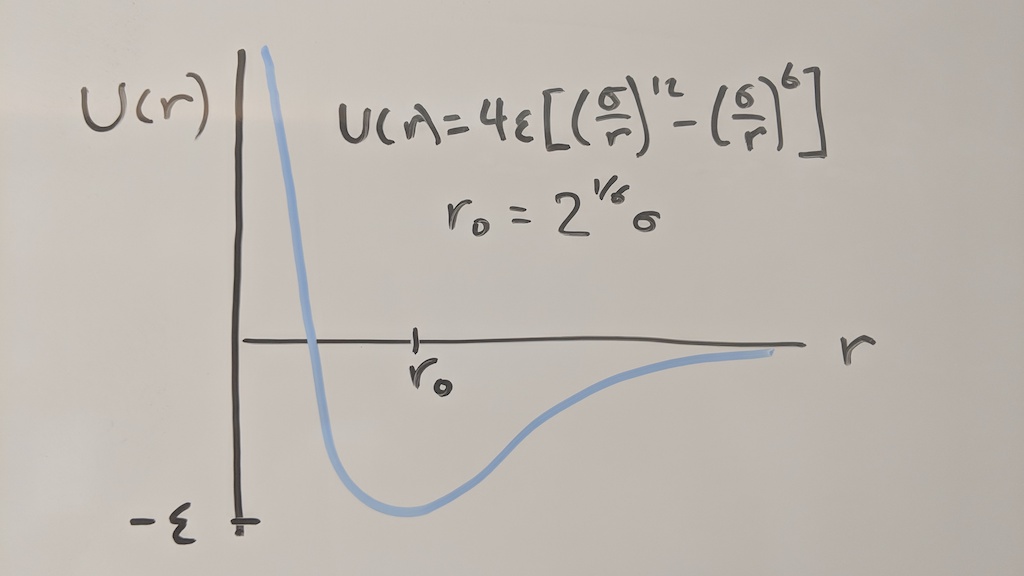 U(r)
U(r) = 4ε[(σ/r)^12 - (σ/r)^6]
r₀ = 2^1/6 σ
r
r₀
-ε